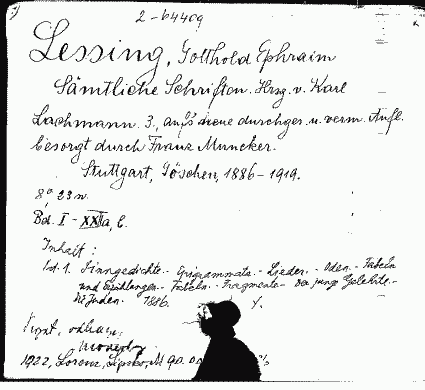 2-64409
Lessing, Gotthold Ephraim
Sämtliche Schriften. Hrsg. v. Karl
Lachmann. 3., aufs neue durchges. u. verm. Aufl.
besorgt durch Franz Muncker.
Stuttgart, Göschen, 1886-1919.
8° 23 n.
Bd. I - XXIIa, b.
Inhalt:
Bd. 1. Sinngedichte.- Epigrammata.- Lieder.- Oden.- Fabeln
und Erzählungen.- Fabeln.- Fragmente.- Der junge Gelehrte.-
Die Juden. 1886.
1922, Lorenz, M 90.